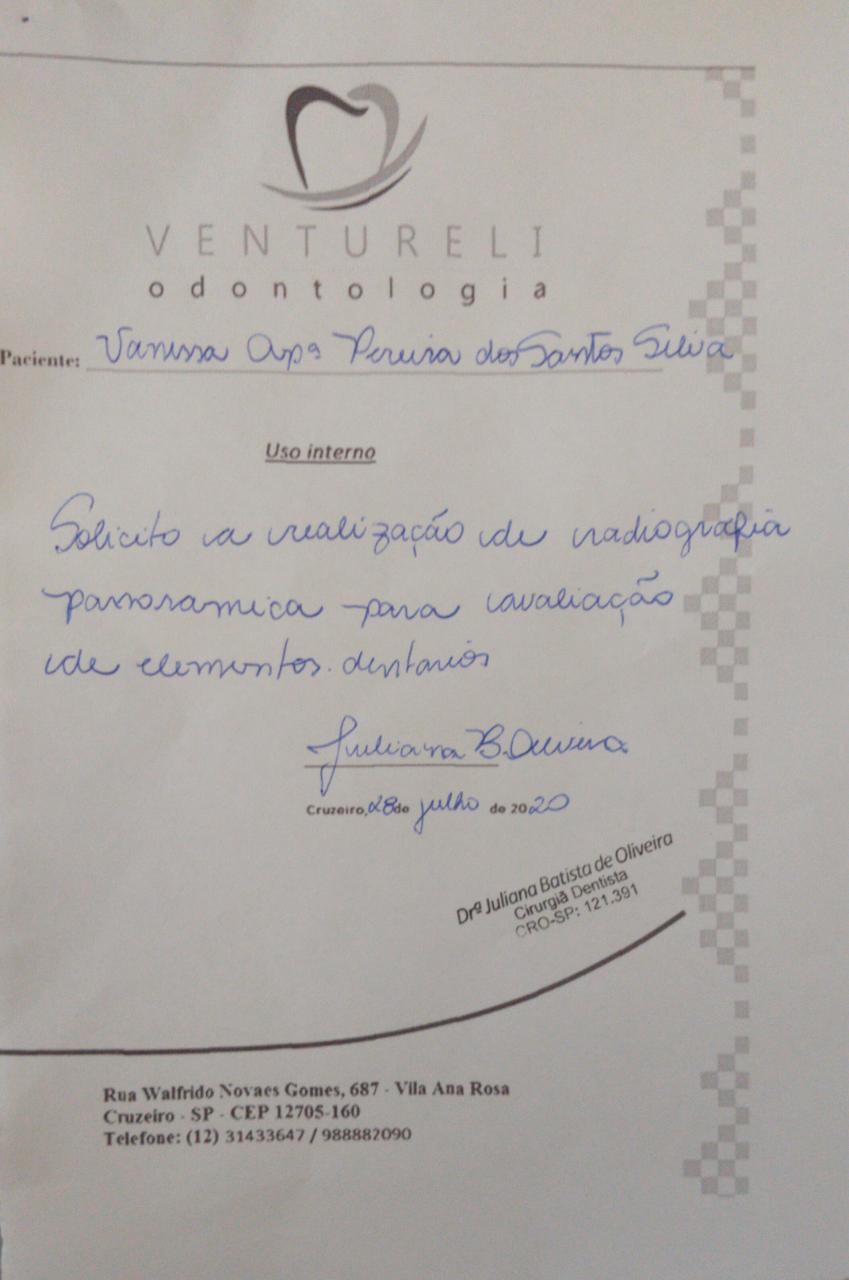 VENTURELI
odontologia
Paciente: Vanessa Apª Pereira dos Santos Silva
Uso interno
Solicito a realização de radiografia
panoramica para avaliação
de elementos dentarios
Juliana B. Oliveira
Cruzeiro, 28 de julho de 2020
Drª Juliana Batista de Oliveira
Cirurgiã Dentista
CRO-SP: 121.391
Rua Walfrido Novaes Gomes, 687 - Vila Ana Rosa
Cruzeiro - SP - CEP 12705-160
Telefone: (12) 31433647 / 988882090